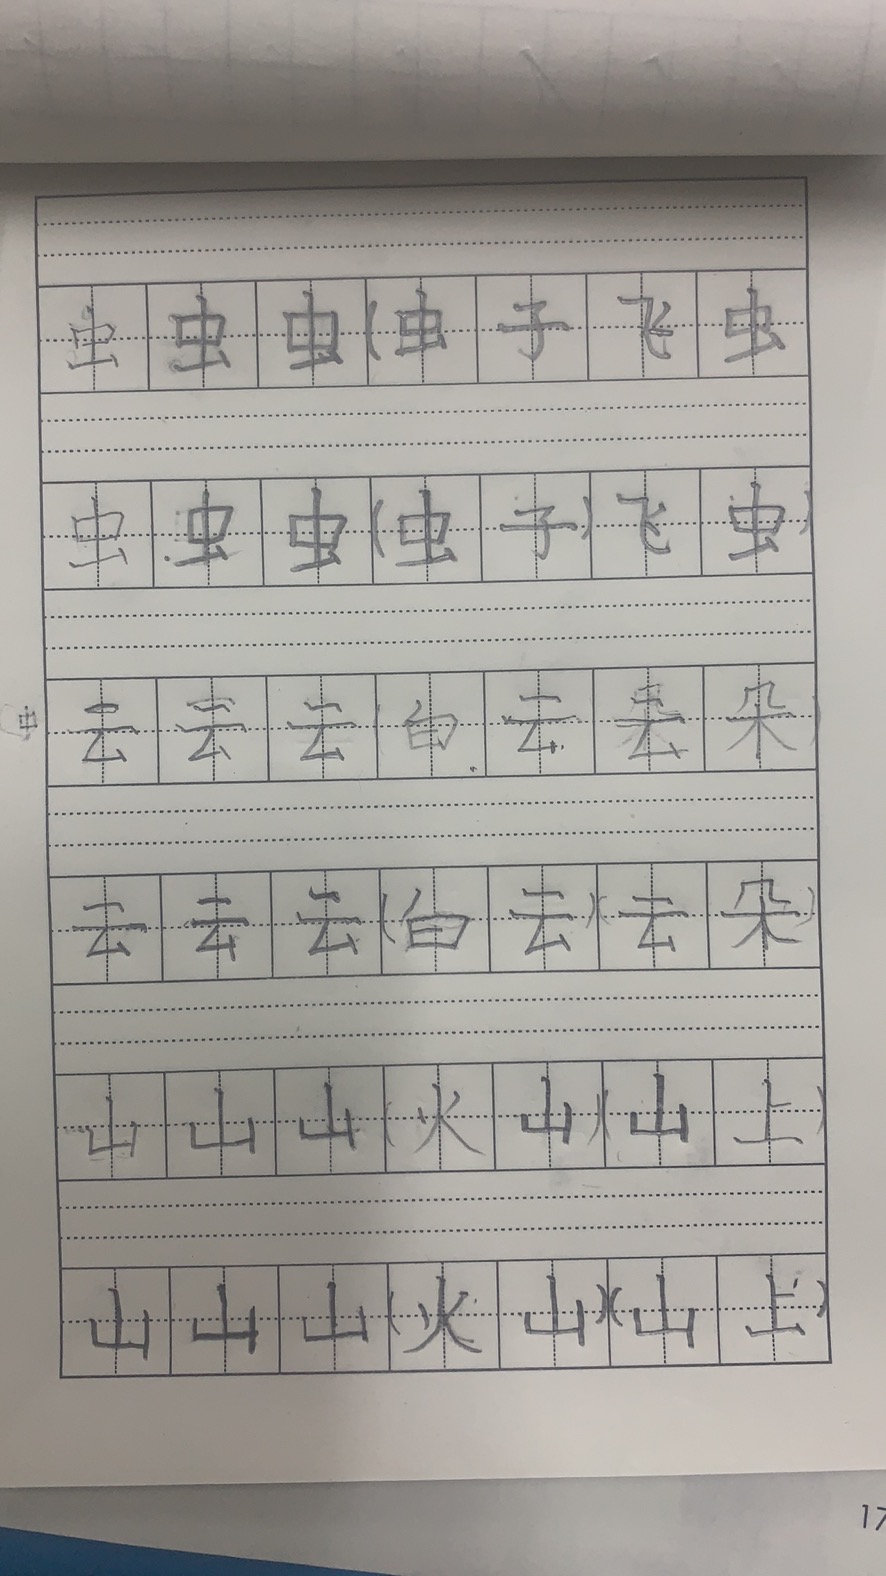 虫虫虫(虫子飞虫
虫虫虫(虫子)飞虫)
云云云(白云云朵)
云云云(白云)(云朵)
山山山(火山)(山上)
山山山(火山)(山上)
17